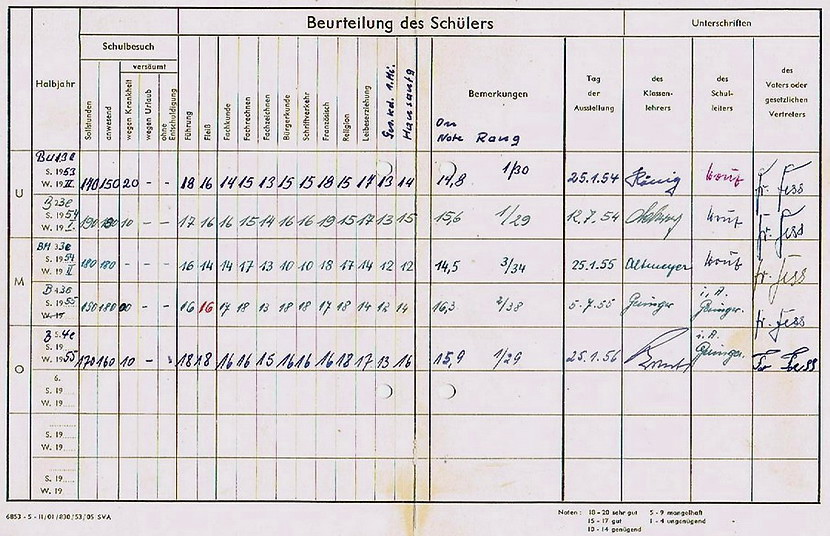 Beurteilung des Schülers
Unterschriften
Schulbesuch
versäumt
Halbjahr
Sollstunden
anwesend
wegen Krankheit
wegen Urlaub
ohne Entschuldigung
Führung
Fleiß
Fachkunde
Fachrechnen
Fachzeichnen
Bürgerkunde
Schriftverkehr
Französisch
Religion
Leibeserziehung
Bemerkungen
Note Rang
Tag der Ausstellung
des Klassenlehrers
des Schulleiters
des Vaters oder gesetzlichen Vertreters
U
S. 1953
W. 19 II 170 150 20 - - 18 16 14 15 13 15 15 18 15 17 13 14 14,8 1/30 25.1.54 König
S. 1954
W. 19 I. 190 180 10 - - 17 16 16 15 14 16 16 19 15 17 13 15 15,6 1/29 12.7.54
M
S. 1954
W. 19 II 180 180 - - - 16 14 14 17 13 10 10 18 17 14 12 12 14,5 3/34 25.1.55 Altmeyer
S. 1955
W. 19 - - 16 16 17 18 13 18 18 17 18 14 12 14 16,3 2/38 5.7.55 i. A.
O
S. 19
W. 1955 170 160 10 - 18 18 16 16 15 16 16 16 18 17 13 16 15,9 1/29 25.1.56 i. A.
6.
S. 19
W. 19
S. 19
W. 19
S. 19
W. 19
6853 - S - II/01/830/53/05 SVA
Noten: 18 - 20 sehr gut 5 - 9 mangelhaft
15 - 17 gut 1 - 4 ungenügend
10 - 14 genügend